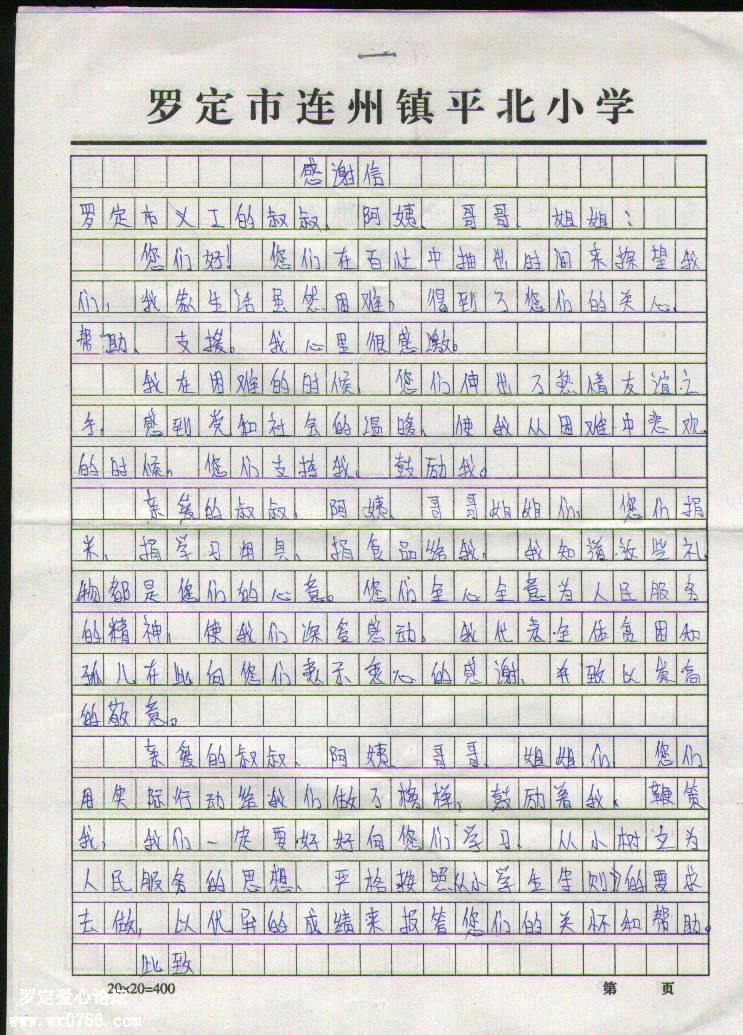 罗定市连州镇平北小学
感谢信
罗定市义工的叔叔、阿姨、哥哥、姐姐：
您们好！您们在百忙中抽出时间来探望我
们，我家生活虽然困难，得到了您们的关心、
帮助、支援。我心里很感激。
我在困难的时候，您们伸出了热情友谊之
手，感到党和社会的温暖，使我从困难中悲观
的时候，您们支持我、鼓励我。
亲爱的叔叔、阿姨、哥哥姐姐们，您们捐
米、捐学习用具、捐食品给我，我知道这些礼
物都是您们的心意。您们全心全意为人民服务
的精神，使我们深受感动。我代表全体贫困和
孤儿在此向您们表示衷心的感谢，并致以崇高
的敬意。
亲爱的叔叔、阿姨、哥哥、姐姐们，您们
用实际行动给我们做了榜样，鼓励着我、鞭策
我，我们一定要好好向您们学习、从小树立为
人民服务的思想、严格按照《小学生守则》的要求
去做，以优异的成绩来报答您们的关怀和帮助。
此致
20x20=400 第 页
罗定爱心论坛
www.wr0766.com